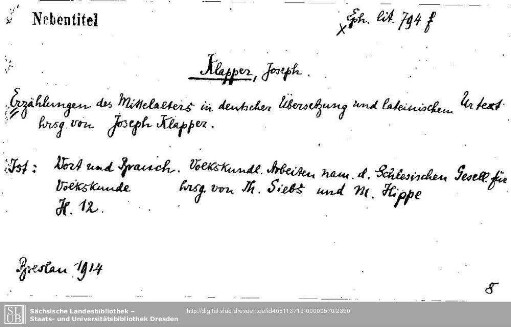 Nebentitel
Eph. lit. 794 f
x
Klapper, Joseph.
Erzählungen des Mittelalters in deutscher Übersetzung und lateinischem Urtext
hrsg. von Joseph Klapper.
Ist: Wort und Brauch. Volkskundl. Arbeiten nam. d. Schlesischen Gesell. für
Volkskunde hrsg. von Th. Siebs und M. Hippe
H. 12.
Breslau 1914
8
SLUB
Sächsische Landesbibliothek –
Staats- und Universitätsbibliothek Dresden